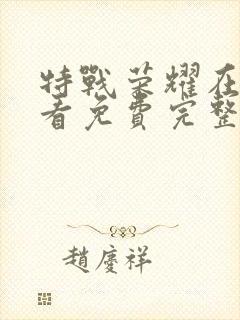 特戰荣耀在
看免費完整
趙慶祥